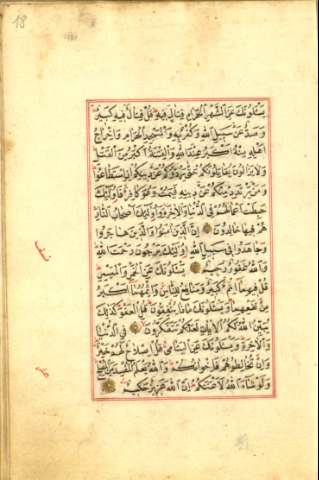 18
يسئلونك عن الشهر الحرام قتال فيه قل قتال فيه كبير
وصد عن سبيل الله وكفر به والمسجد الحرام واخراج
اهله منه اكبر عند الله والفتنة اكبر من القتل
ولا يزالون يقاتلونكم حتى يردوكم عن دينكم ان استطاعوا
ومن يرتدد منكم عن دينه فيمت وهو كافر فاولئك
حبطت اعمالهم في الدنيا والاخرة واولئك اصحاب النار
هم فيها خالدون ان الذين امنوا والذين هاجروا
وجاهدوا في سبيل الله اولئك يرجون رحمت الله
والله غفور رحيم يسئلونك عن الخمر والميسر
قل فيهما اثم كبير ومنافع للناس واثمهما اكبر
من نفعهما ويسئلونك ماذا ينفقون قل العفو كذلك
يبين الله لكم الايات لعلكم تتفكرون في الدنيا
والاخرة ويسئلونك عن اليتامى قل اصلاح لهم خير
وان تخالطوهم فاخوانكم والله يعلم المفسد من المصلح
ولو شاء الله لاعنتكم ان الله عزيز حكيم